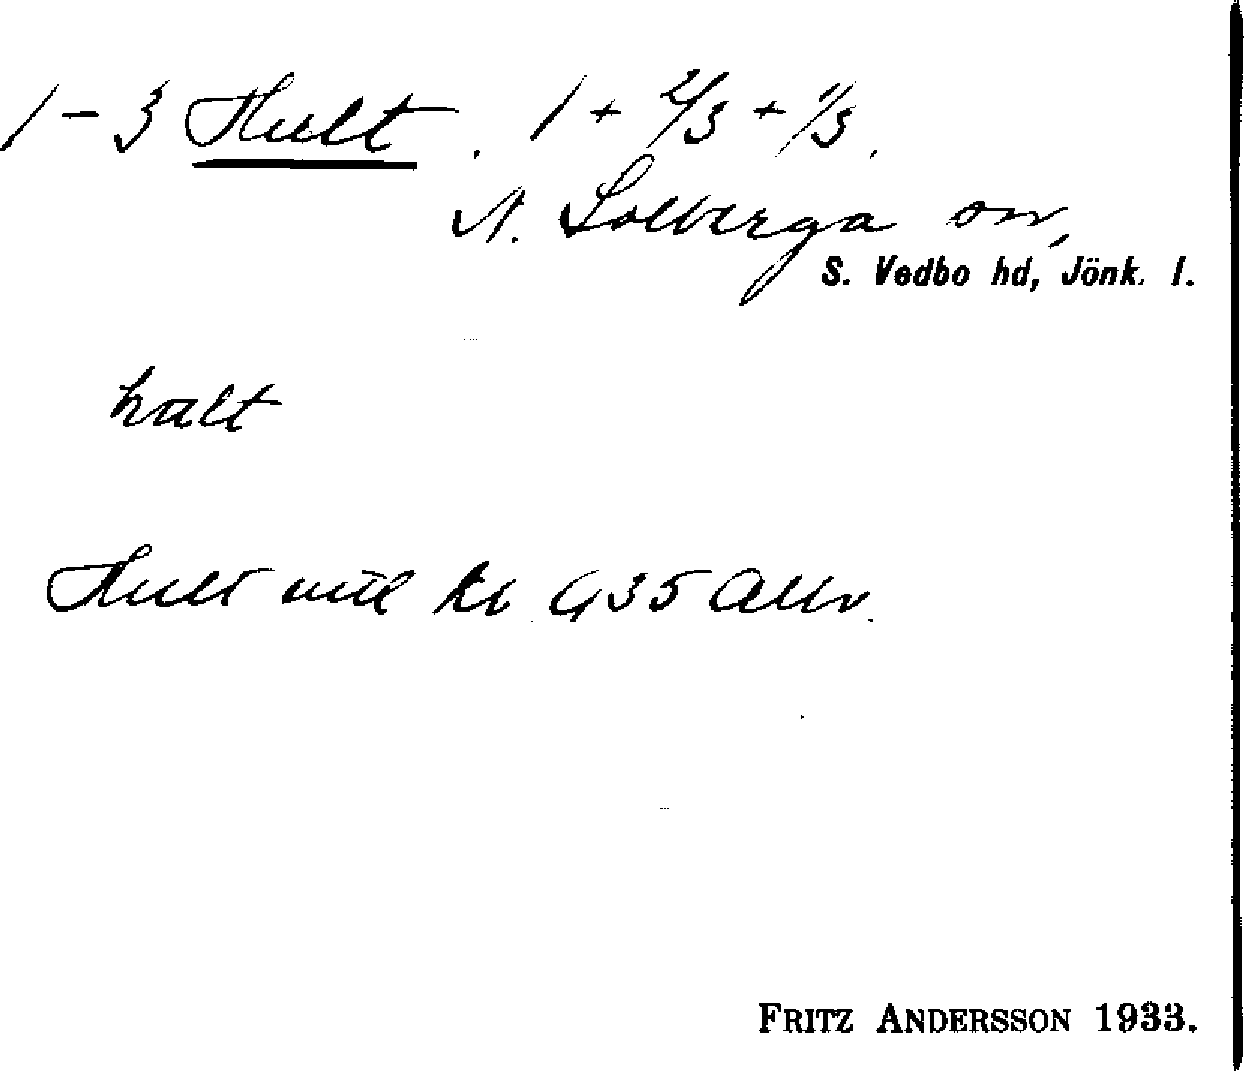 1-3 Hult. 1 + 2/3 + 1/3.
N. Solberga sn,
S. Vedbo hd, Jönk. l.
halt
Hult
FRITZ ANDERSSON 1933.